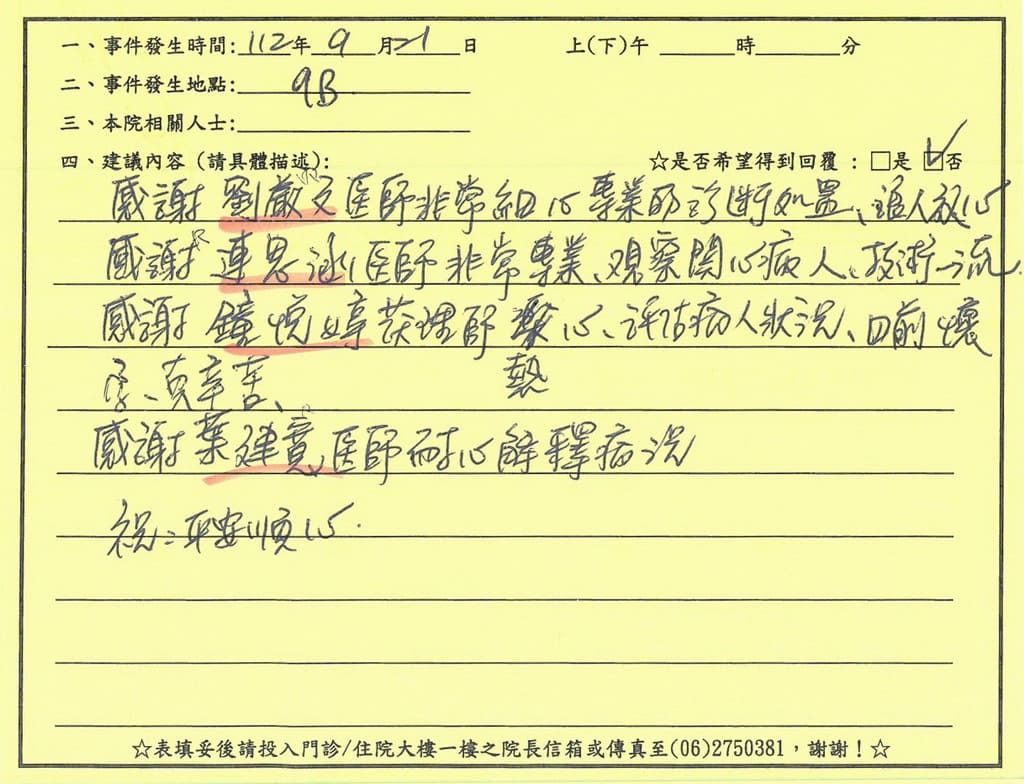 一、事件發生時間:112年9月21日 上(下)午 時 分
二、事件發生地點:9B
三、本院相關人士:
四、建議內容(請具體描述): ☆是否希望得到回覆：□是 ☑否
感謝 劉嚴文醫師非常細心專業的診斷處置、讓人放心
感謝 連思涵醫師非常專業、觀察關心病人、技術一流.
感謝 鐘悅婷護理師 熱心、評估病人狀況、目前懷
孕、真辛苦、
感謝 葉建寬醫師耐心解釋病況
祝:平安順心.
☆表填妥後請投入門診/住院大樓一樓之院長信箱或傳真至(06)2750381，謝謝！☆